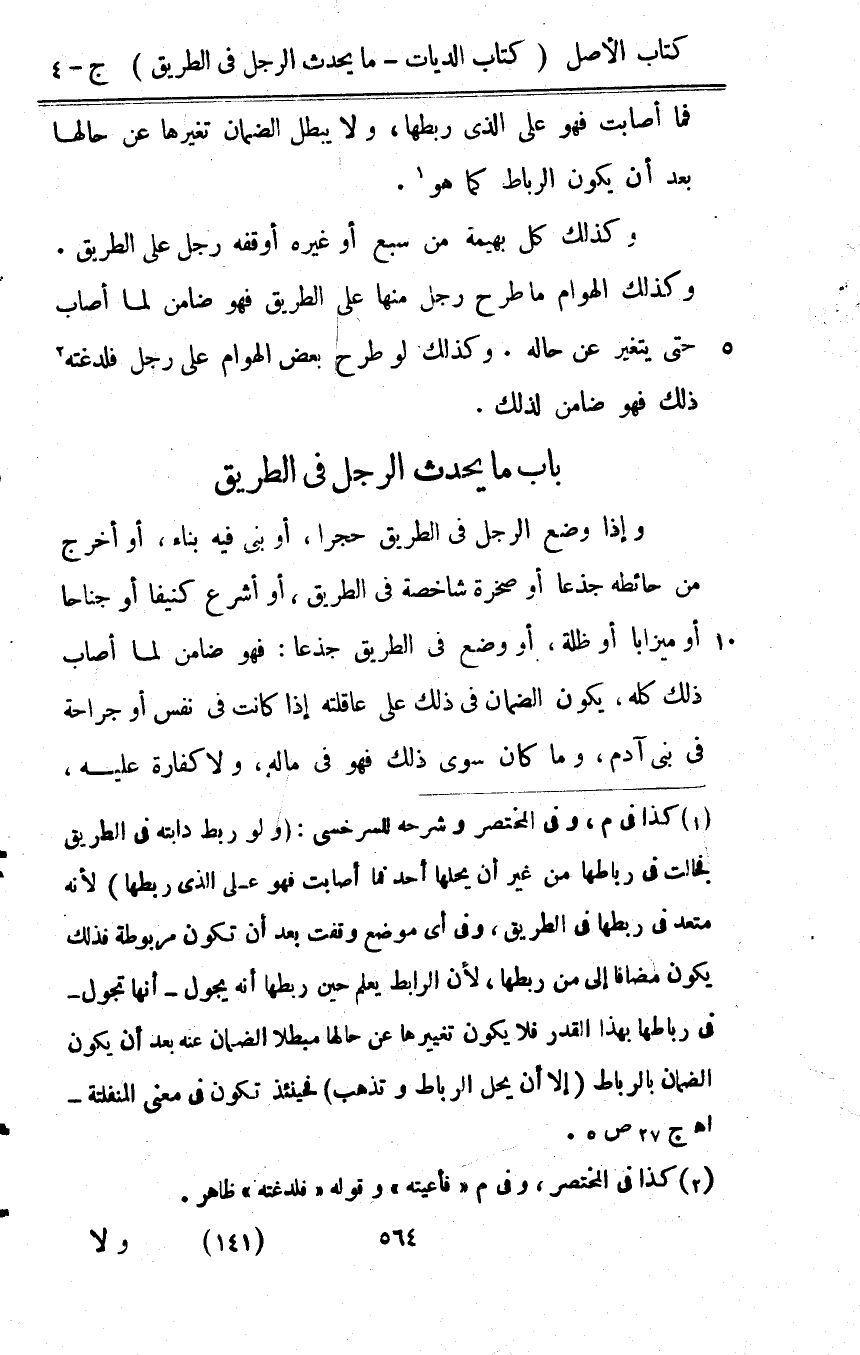 كتاب الأصل ( كتاب الديات – ما يحدث الرجل فى الطريق ) ج – ٤
فما أصابت فهو على الذى ربطها، و لا يبطل الضمان تغيرها عن حالها
بعد أن يكون الرباط كما هو ١ .
و كذلك كل بهيمة من سبع أو غيره أوقفه رجل على الطريق .
وكذلك الهوام ما طرح رجل منها على الطريق فهو ضامن لما أصاب
٥ حتى يتغير عن حاله . وكذلك لو طرح بعض الهوام على رجل فلدغته ٢
ذلك فهو ضامن لذلك .
باب ما يحدث الرجل فى الطريق
و إذا وضع الرجل فى الطريق حجرا ، أو بنى فيه بناء ، أو أخرج
من حائطه جذعا أو صخرة شاخصة فى الطريق ، أو أشرع كنيفا أو جناحا
١٠ أو ميزابا أو ظلة ، أو وضع فى الطريق جذعا : فهو ضامن لما أصاب
ذلك كله ، يكون الضمان فى ذلك على عاقلته إذا كانت فى نفس أو جراحة
فى بنى آدم ، و ما كان سوى ذلك فهو فى ماله ، و لا كفارة عليه ،
(١) كذا فى م ، و فى المختصر و شرحه للسرخسى : (و لو ربط دابته فى الطريق
فجالت فى رباطها من غير أن يحلها أحد فما أصابت فهو على الذى ربطها) لأنه
متعد فى ربطها فى الطريق ، وفى أى موضع وقفت بعد أن تكون مربوطة فذلك
يكون مضافا إلى من ربطها ، لأن الرابط يعلم حين ربطها أنه يجول – أنها تجول –
فى رباطها بهذا القدر فلا يكون تغييرها عن حالها مبطلا الضمان عنه بعد أن يكون
الضمان بالرباط (إلا أن يحل الرباط و تذهب) فحينئذ تكون فى معنى المنفلتة –
اه ج ٢٧ ص ٥ .
(٢) كذا فى المختصر ، و فى م « فأعيته » و قوله « فلدغته » ظاهر .
٥٦٤ (١٤١) و لا